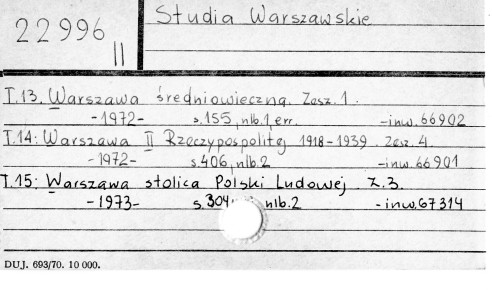 22996
II
Studia Warszawskie
T.13. Warszawa średniowieczna. Zesz. 1.
-1972- s.155, nlb.1, err. -inw.66902
T.14: Warszawa II Rzeczypospolitej 1918-1939. Zesz. 4.
-1972- s.406, nlb.2 -inw.66901
T.15: Warszawa stolica Polski Ludowej. Z.3.
-1973- s.304, nlb.2 -inw.67314
DUJ. 693/70. 10 000.